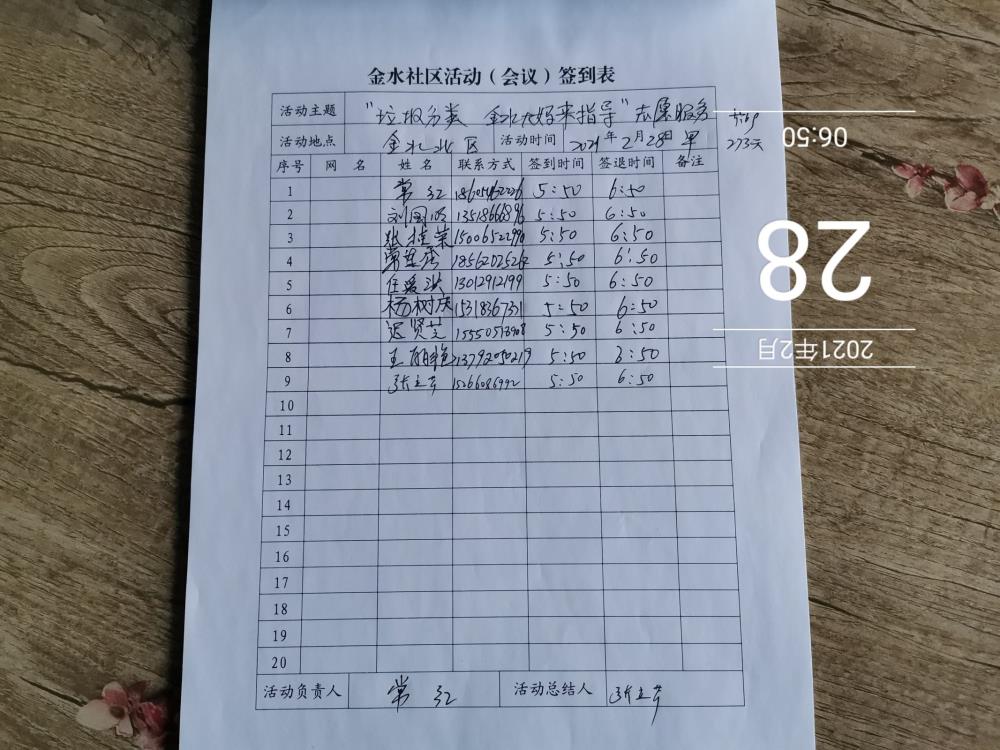 金水社区活动（会议）签到表
活动主题 "垃圾分类 金水大妈来指导"志愿服务
活动地点 金水北区 活动时间 2021年2月28日 早 273天
序号 网 名 姓 名 联系方式 签到时间 签退时间 备注
1 常红 5:50 6:50
2 刘国明 5:50 6:50
3 张桂荣 15006522990 5:50 6:50
4 5:50 6:50
5 任爱洪 13012912199 5:50 6:50
6 杨树庆 15318367331 5:50 6:50
7 迟贤芝 5:50 6:50
8 13792050219 5:50 3:50
9 张立芹 15266086992 5:50 6:50
10
11
12
13
14
15
16
17
18
19
20
活动负责人 常 红 活动总结人 张立芹
06:50
28
2021年2月